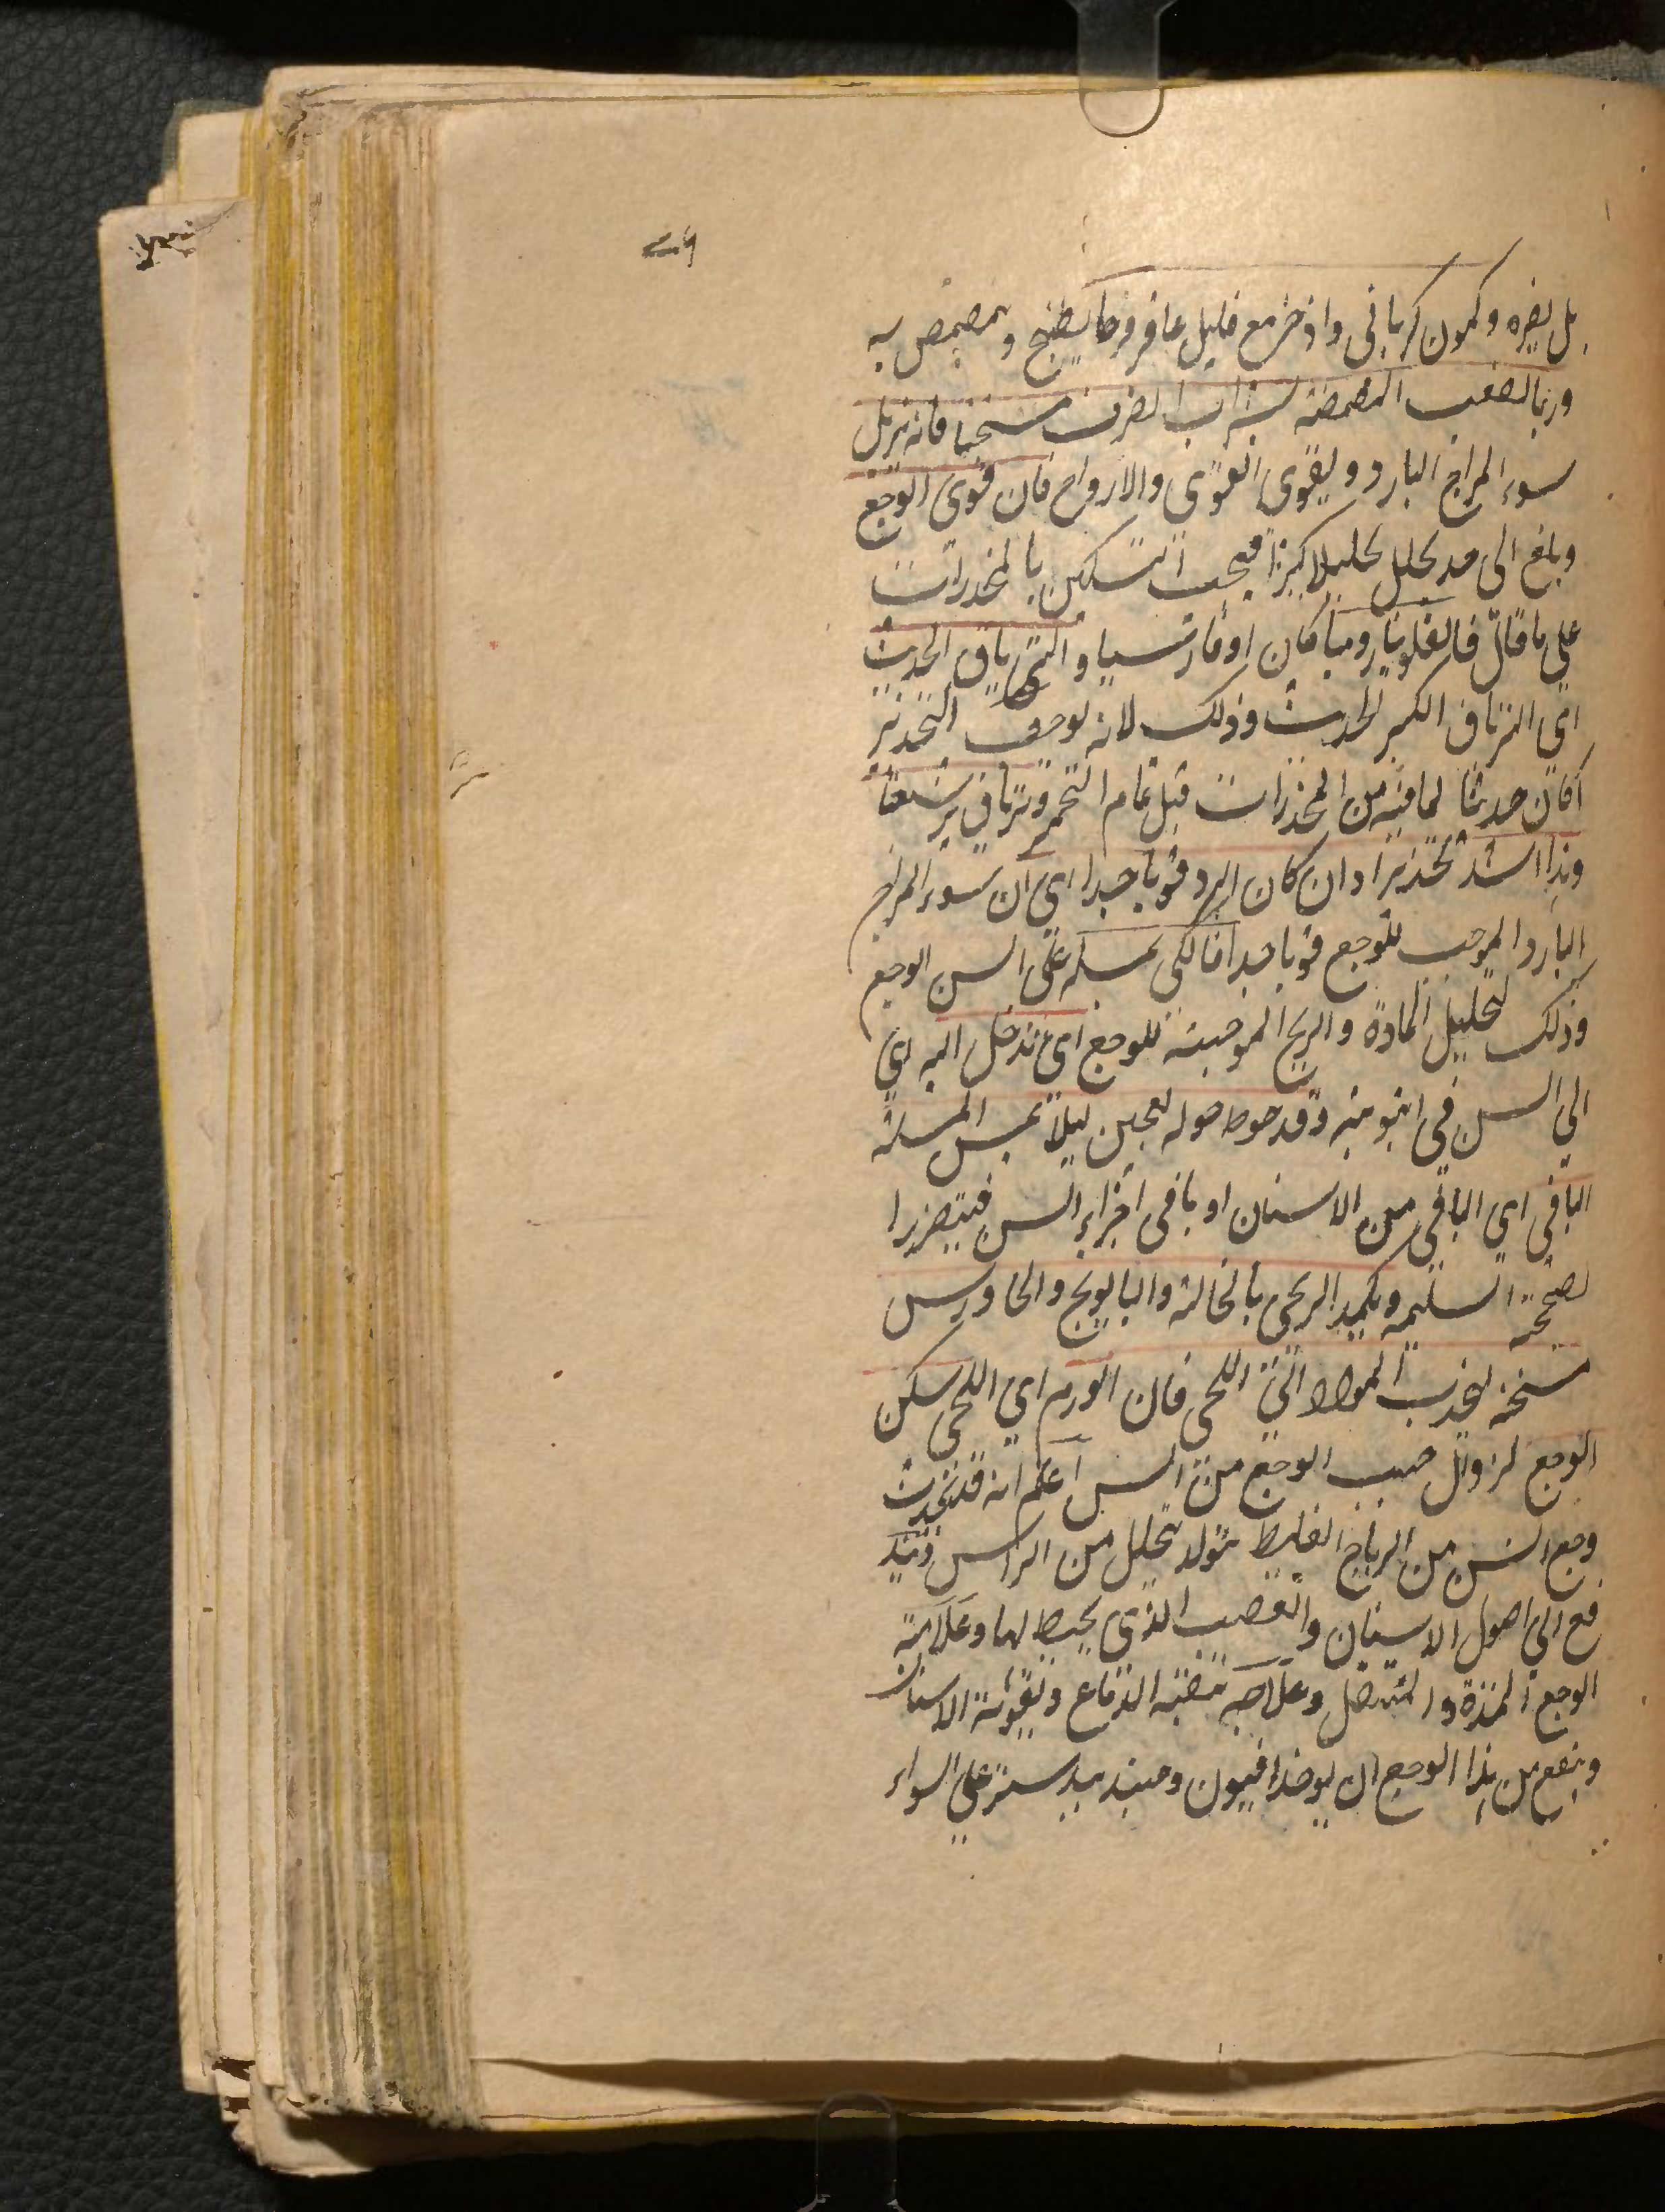 بل يضره وكمون كرماني واذخر مع قليل عاقرقرحا يطبخ ويمضمض به
وربما المضمضة بشراب الصرف مسخنا فانه يزيل
سوء المزاج البارد ويقوى القوى والارواح فان قوى الوجع
وبلغ الى حد يحلل تحليلا كثيرا فيجب التسكين بالمخدرات
على ما قال فالفلونيا روميا كان او فارسيا والترياق الحديث
اى الترياق الكبير الحديث وذلك لانه يوجب التخدير
اكان حديثا لما فيه من المخدرات قبل تمام التخمر وترياق برشعثا
وهذا اشد تخديرا وان كان البرد قويا جدا اى ان سوء المزاج
البارد الموجب للوجع قويا جدا فالكى بمسلة على السن الوجع
وذلك لتحليل المادة والريح الموجبة للوجع اى تدخل اليه اى
الى السن فى انبوبة وقد حوط حوله بعجين ليلا تمس المسلة
الباقى اى الباقى من الاسنان او باقى اجزاء السن فيتضررا
لصحة السليمة وتكميد اللحى بالنخالة والبابونج والجاورس
مسخنة لجذب المواد الى اللحى فان الورم اى اللحى سكن
الوجع لزوال سبب الوجع من السن اعلم انه قد تحدث
وجع السن من الرياح الغليظ تتولد تحلل من الراس وتند
فع الى اصول الاسنان والعصب الذى يحيط لها وعلامة
الوجع الممددة والتنقل وعلاجه تنقية الدماغ وتقوية الاسنان
وينفع من هذا الوجع ان يوخذ افيون وجندبيدستر على السواء